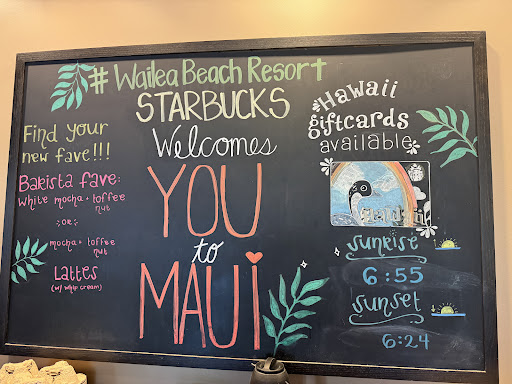 # Wailea Beach Resort
STARBUCKS
Welcomes
YOU
to
MAUI
Find your
new fave!!!
Barista fave:
White mocha + toffee
nut
:or:
mocha + toffee
nut
Lattes
(w/ whip cream)
Hawaii
giftcards
available
Sunrise
6:55
Sunset
6:24